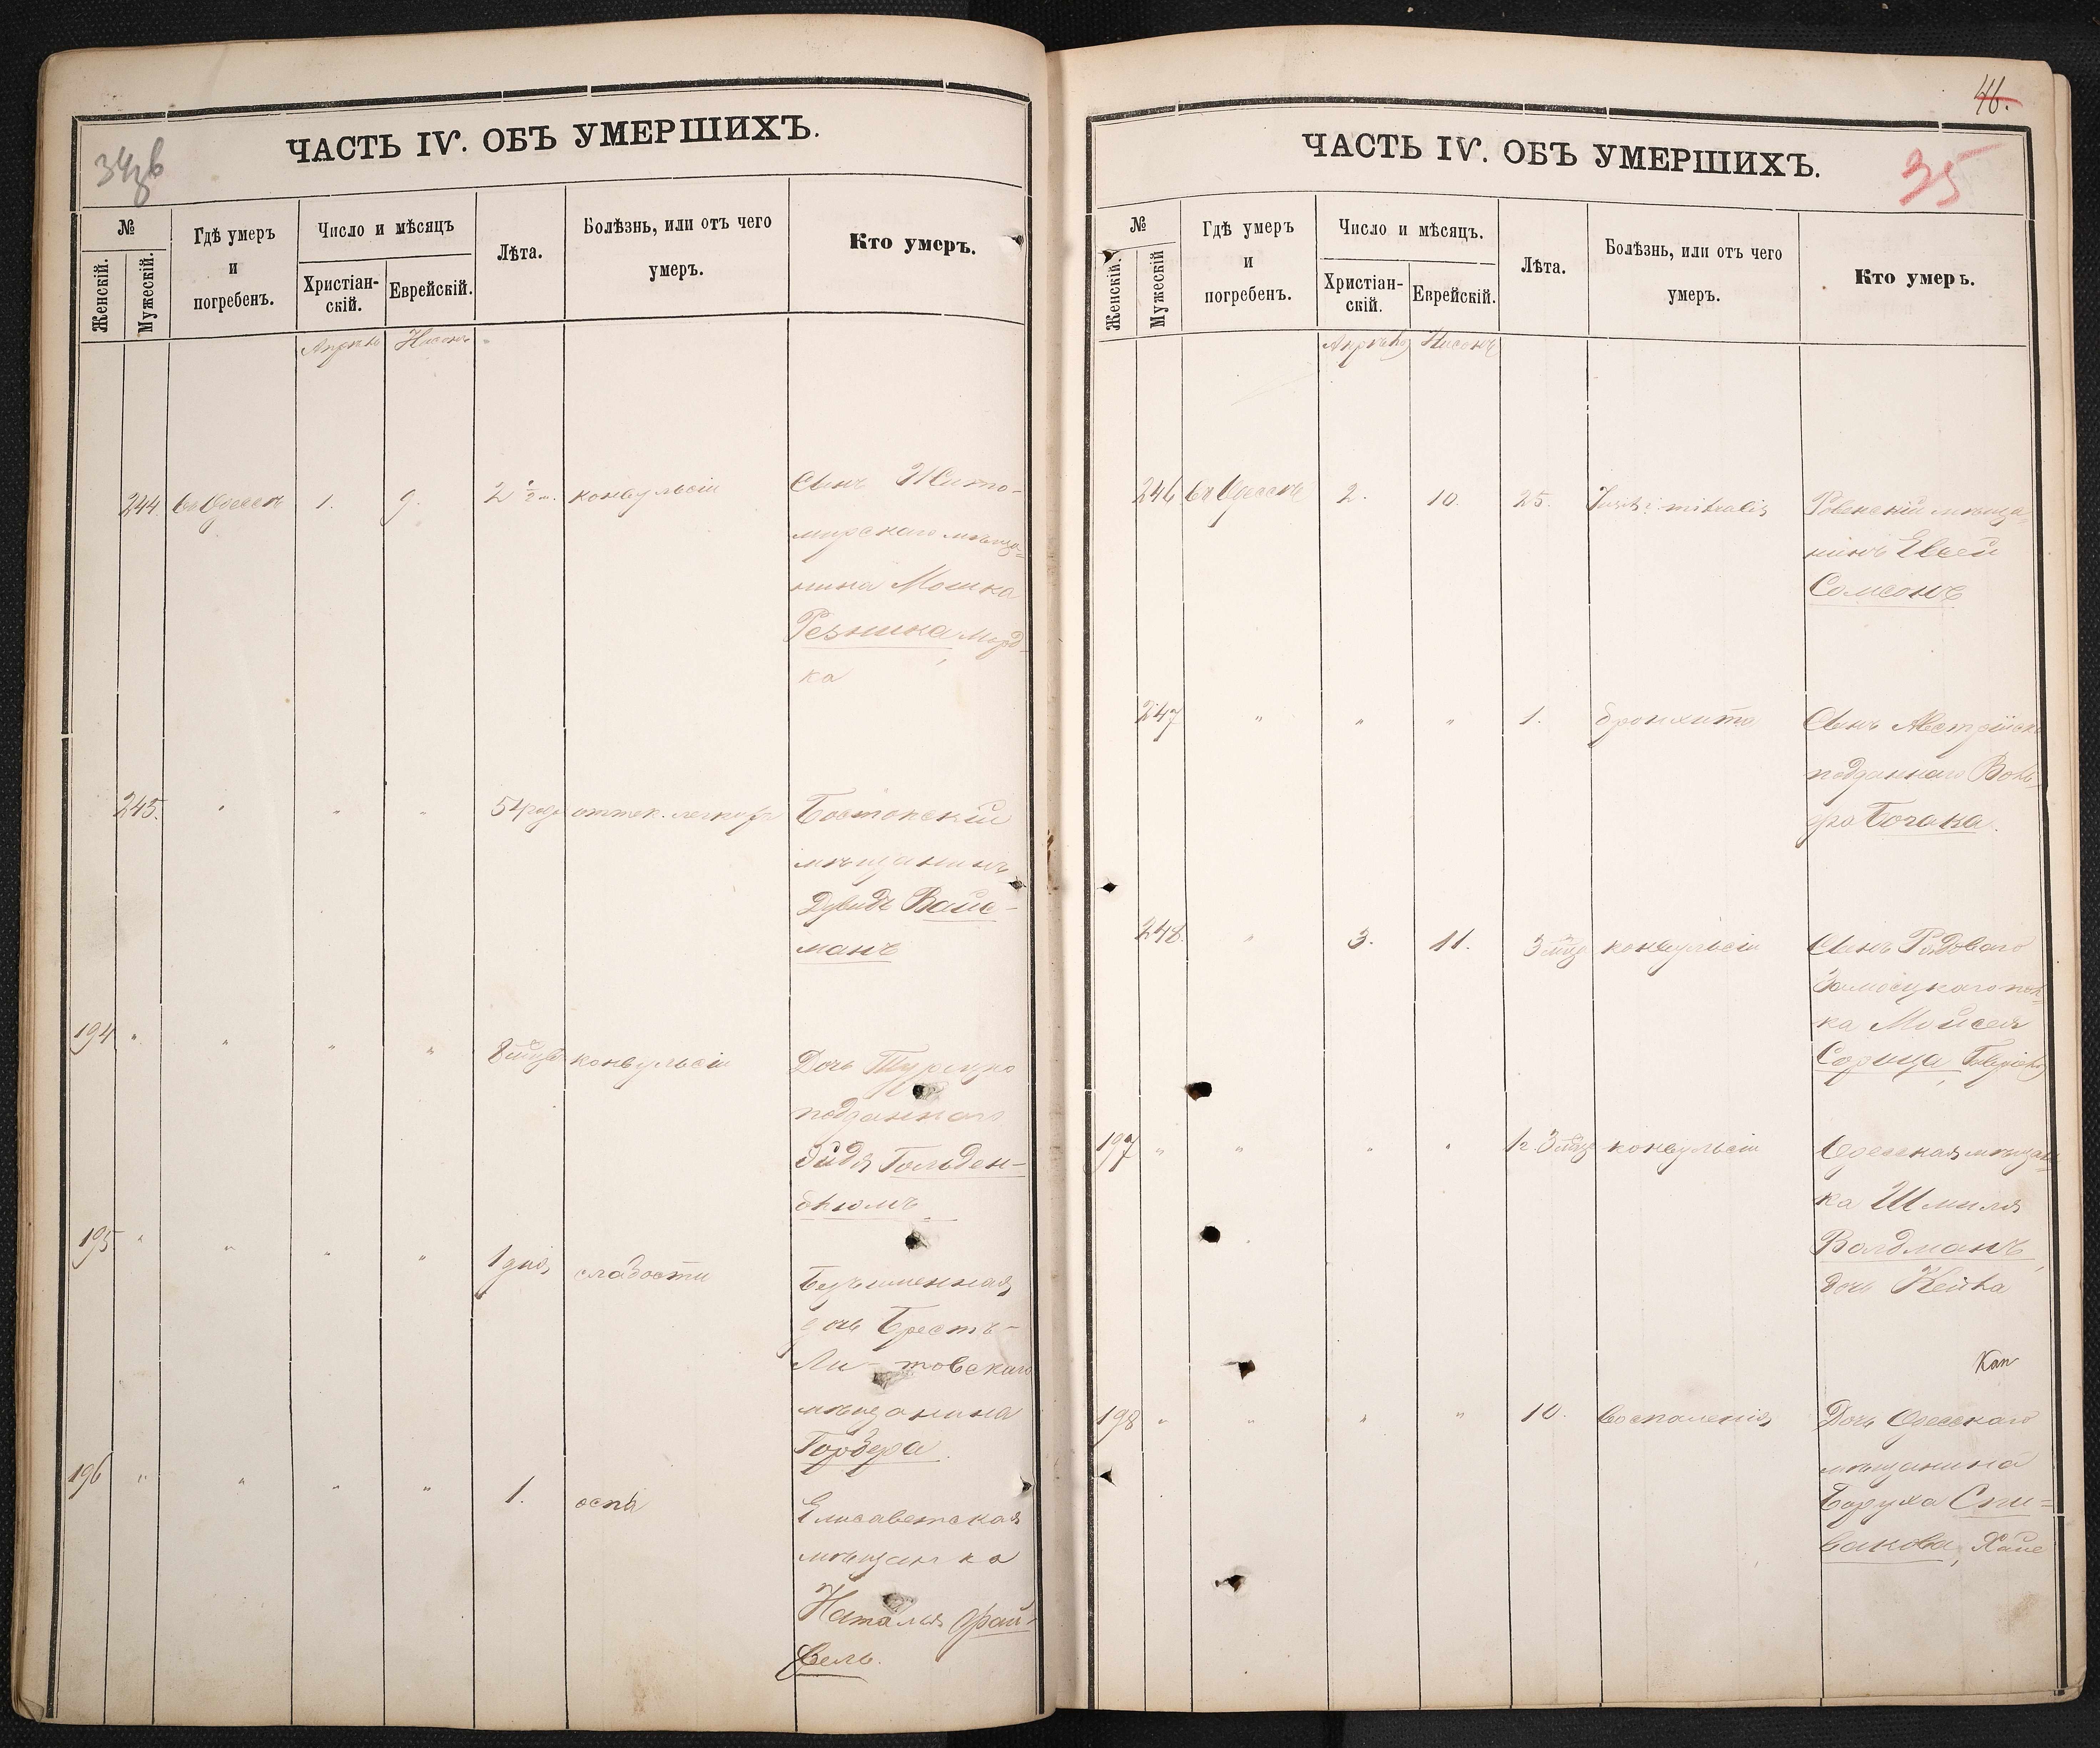 ЧАСТЬ IV. ОБЪ УМЕРШИХЪ.
№
Женскій.
Мужескій.
Гдѣ умеръ
и
погребенъ.
Число и мѣсяцъ
Христіан-
скій.
Еврейскій.
Лѣта.
Болѣзнь, или отъ чего
умеръ.
Кто умеръ.
Апрель Нисонъ
244. въ Одессѣ 1. 9. 2 1/2 м. конвульсіи
Сынъ Жито-
мирскаго мѣща-
нина Мошка
Резника, Морд-
ка
245. " " " 54 отек. легкихъ
мѣщанинъ
Дувидъ Вайс-
манъ
194 " " " " 8 мцвъ конвульсіи
Дочь Турецко
подданнаго
Гольден-
блюмъ
195 " " " " 1 дня слабости
Безъименная
дочь Брестъ-
Ли-товскаго
мѣщанина
196 " " " " 1. оспа
Елисаветская
мѣщанка
Наталья Фай-
вель.
46.
ЧАСТЬ IV. ОБЪ УМЕРШИХЪ.
35
№
Женскій.
Мужескій
Гдѣ умеръ
и
погребенъ.
Число и мѣсяцъ.
Христіан-
скій.
Еврейскій.
Лѣта.
Болѣзнь, или отъ чего
умеръ.
Кто умеръ.
Апрель Нисонъ
246. въ Одессѣ 2. 10. 25. mitralis
Ровенскій мѣща-
нинъ Евсей
Сомсонъ
247 " " " 1. бронхита
Сынъ Австрійск.
подданнаго Воль-
фа Бочака.
248. " 3. 11. 3 мцъ конвульсіи
Сынъ Рядоваго
Замосцкаго пол-
ка Мойсея
Сорица,
197 " " " " 1 г 3 мцъ конвульсіи
Одесская мѣщан-
ка Шмиля
Волдманъ,
дочь Кейла
198 " " " " 10. воспаленія
Дочь Одесскаго
мѣщанина
Боруха Спи-
вакова, Хане